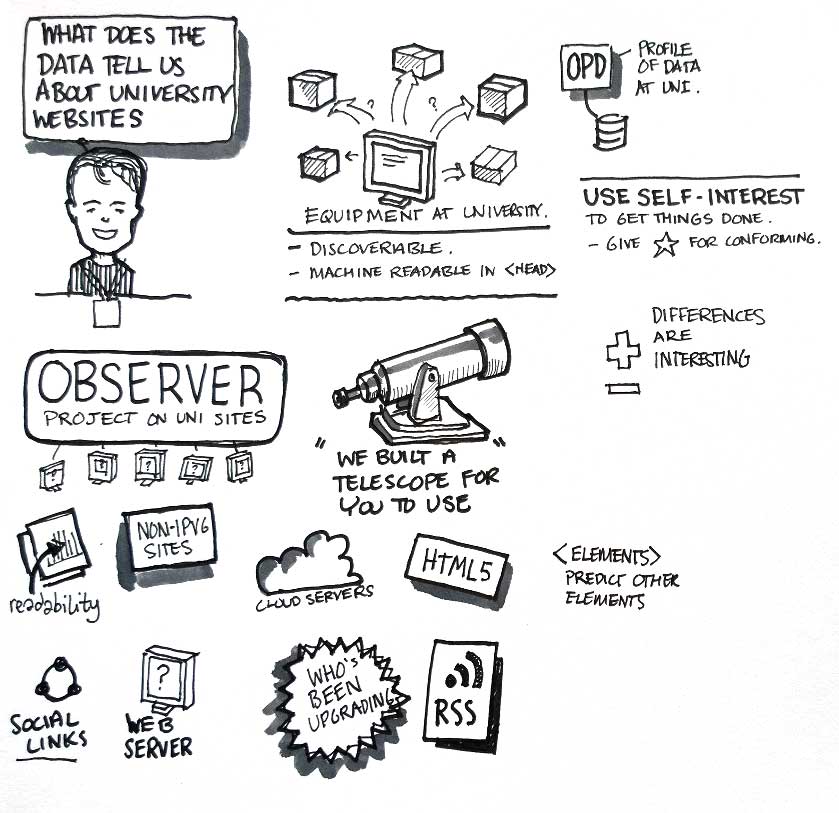 WHAT DOES THE
DATA TELL US
ABOUT UNIVERSITY
WEBSITES
?
?
EQUIPMENT AT UNIVERSITY.
- DISCOVERABLE.
- MACHINE READABLE IN <HEAD>
OPD
PROFILE
OF DATA
AT UNI.
USE SELF-INTEREST
TO GET THINGS DONE.
- GIVE ☆ FOR CONFORMING.
+
-
DIFFERENCES
ARE
INTERESTING
OBSERVER
PROJECT ON UNI SITES
? ? ? ? ?
"WE BUILT A
TELESCOPE FOR
YOU TO USE"
readability
NON-IPV6
SITES
CLOUD SERVERS
HTML5
<ELEMENTS>
PREDICT OTHER
ELEMENTS
SOCIAL
LINKS
?
WEB
SERVER
WHO'S
BEEN
UPGRADING
RSS